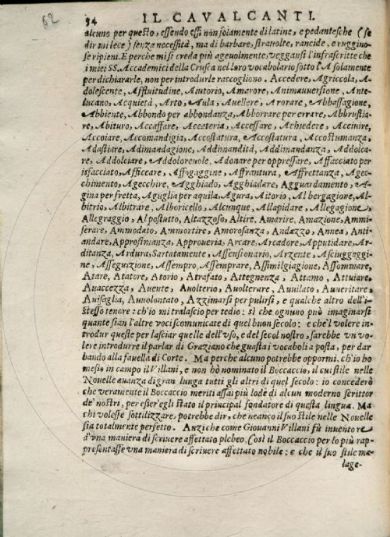 62
94 IL CAVALCANTI.
alcuno per questo, essendo essi non iv di latine, e pedantesche (se
dir mi lece) senza necessità, ma di barbare, stranolte, rancide, e ruggino-
se ripieni. E perche mi si creda più ageuolmente, veggansi l'infrascritte che
i miei SS. Academici della Crusca nel loro vocabolario sotto l'A solamente
per dichiararle, non per introdurle raccogliono, Accedere, Agriccola, A-
dolescente, Astituidine, Autorio, Amarore, Animauersione, Ante-
lucano, Acquietà, Arto, Aula, Auellere, Arorare, Abbassagione,
Abbiente, Abbondo per abbondanza, Abborrare per errare, Abbrustia-
re, Abituro, Accaffare, Accesteria, Acceffare, Achiedere, Acceinire,
Accoiare, Accomandigia, Accostatura, Accostatura, Accostumanza,
Adastiare, Adimandagione, Addimandità, Addimandanza, Addolca-
re, Addolciare, Addoloreuole, Adonare per oppressare, Affacciato per
infacciato, Afficcare, Affogaggine, Affrantura, Affrettanza, Agec-
chimento, Agecchire, Agghiado, Agghiadare, Agguardamento, A-
gina per fretta, Aguglia per aquila, Agura, Aitorio, Al bergagione, Al-
bitrio, Albitrare, Alboricello, Alcunque, Allapidare, Allegagione,
Allegraggio, Al postutto, Altazzoso, Altire, Amarire, Amazione, Ammi-
serare, Ammodato, Ammortire, Amorosanza, Andazzo, Annea, Anti-
andare, Approssimanza, Approueria, Arcare, Arcadore, Apputidare, Ar-
ditanza, Ardura, Sartatamente, Assensionario, Arzente, Asciugaggi-
ne, Assegurzione, Assempro, Assemprare, Assimilgiagione, Assommare,
Atare, Atatore, Atorio, Atrafato, Attegnenza, Attamo, Attato, Auiare,
Auaccezza, Auente, Auolterio, Auolterare, Auuilato, Auueritare,
Auisaglia, Auuolontato, Azzimarsi per pulirsi, e qualche altro dell'i-
stesso tenore: ch'io mi tralascio per tedio: sì che ognuno può imaginarsi
quante sian l'altre voci scomunicate di quel buon secolo: e che 'l volere in-
trodur queste per lasciar quelle dell'vso, e del secol nostro, sarebbe un vo-
lere introdurre il parlar di Graziano che guasta i vocaboli a posta, per dar
bando alla fauella di Corte. Ma perche alcuno potrebbe oppormi, ch'io ho
messi in campo il Villani, e non hò nominato il Boccaccio, il cui stile nelle
Nouelle auanza di gran lunga tutti gli altri di quel secolo: io concederò
che veramente il Boccaccio meriti assai più lode di alcun moderno scrittor
de' nostri, per esser'egli stato il principal fondatore di questa lingua. Ma
chi volesse sottilizzare, potrebbe dir, che neanco il suo stile nelle Nouelle
sia totalmente perfetto. Anzi che come Giouanni Villani fù inuentore
d'vna maniera di scriuere affettato plebeo. Così il Boccaccio per lo più rap-
presentasse vna maniera di scriuere affettato nobile: e che il suo stile ma-
lage-